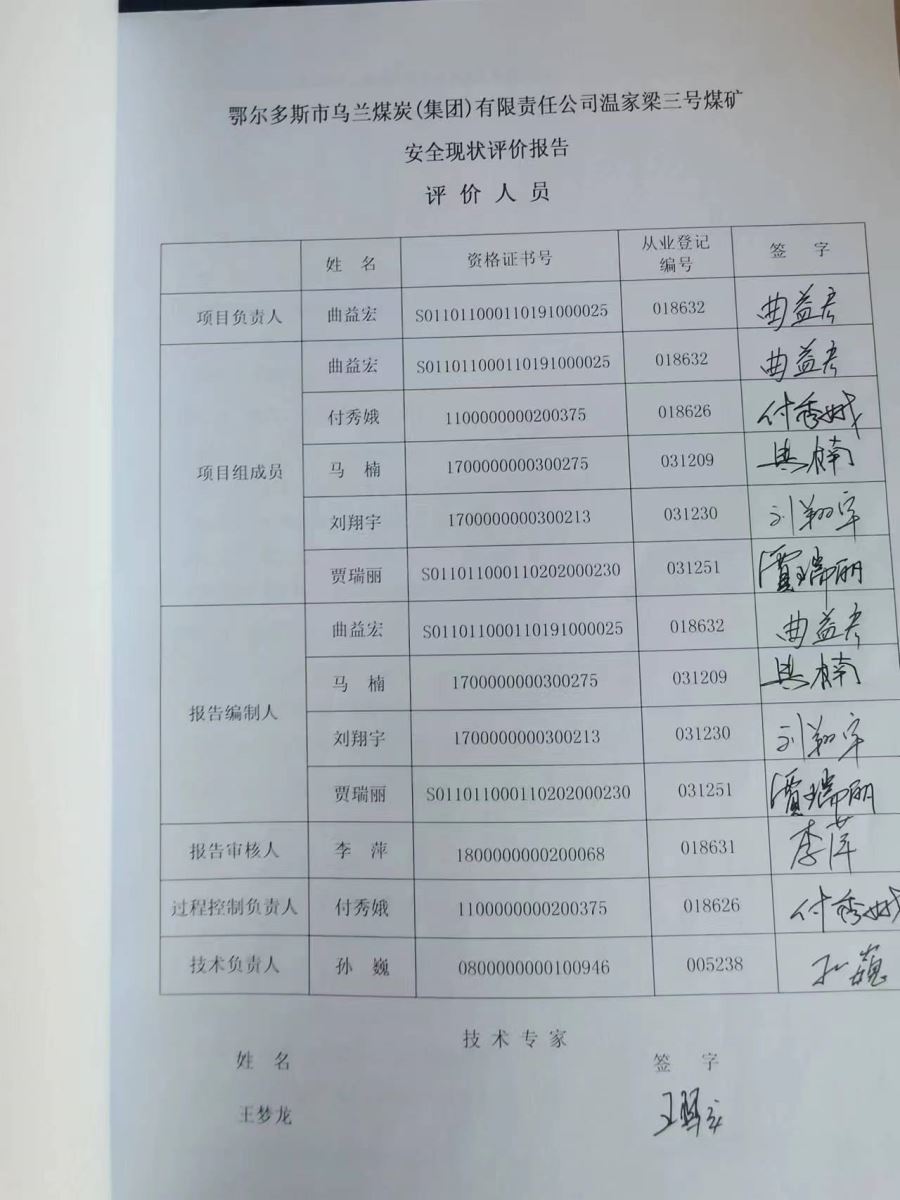 鄂尔多斯市乌兰煤炭(集团)有限责任公司温家梁三号煤矿
安全现状评价报告
评价人员
姓 名 资格证书号 从业登记编号 签 字
项目负责人 曲益宏 S011011000110191000025 018632 曲益宏
项目组成员 曲益宏 S011011000110191000025 018632 曲益宏
付秀娥 1100000000200375 018626 付秀娥
马 楠 1700000000300275 031209 马楠
刘翔宇 1700000000300213 031230 刘翔宇
贾瑞丽 S011011000110202000230 031251 贾瑞丽
报告编制人 曲益宏 S011011000110191000025 018632 曲益宏
马 楠 1700000000300275 031209 马楠
刘翔宇 1700000000300213 031230 刘翔宇
贾瑞丽 S011011000110202000230 031251 贾瑞丽
报告审核人 李 萍 1800000000200068 018631 李萍
过程控制负责人 付秀娥 1100000000200375 018626 付秀娥
技术负责人 孙 巍 0800000000100946 005238 孙巍
技术专家
姓 名 签 字
王梦龙 王梦龙